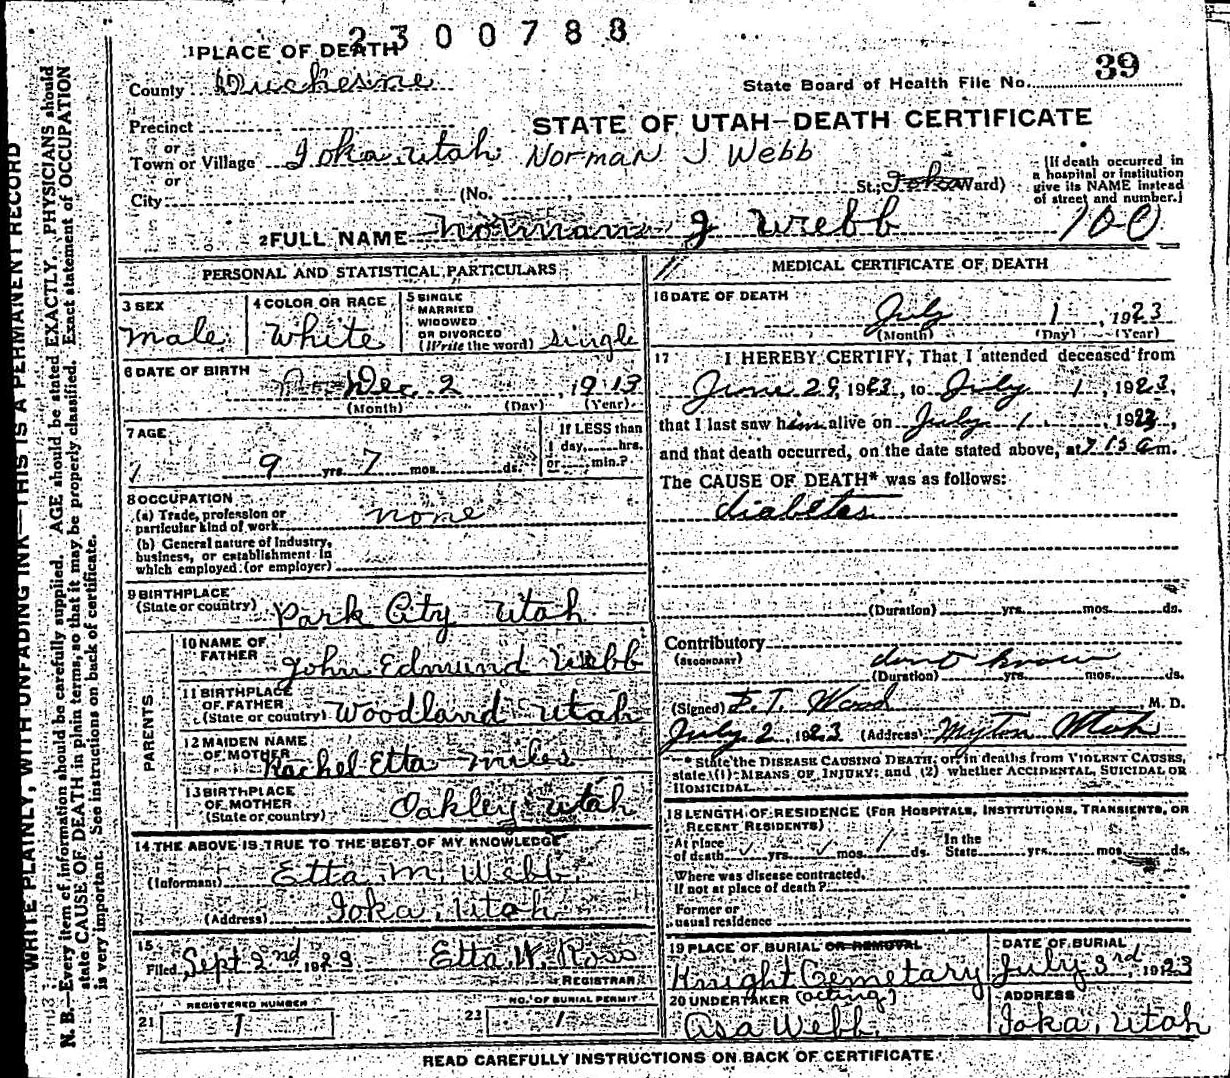 2300788
1 PLACE OF DEATH
County Duchesne
State Board of Health File No. 39
Precinct
STATE OF UTAH—DEATH CERTIFICATE
or
Town or Village Ioka, Utah Norman J Webb
or
City (No. St.; Ioka Ward)
(If death occurred in a hospital or institution give its NAME instead of street and number.)
2 FULL NAME Norman J Webb 100
PERSONAL AND STATISTICAL PARTICULARS
3 SEX male
4 COLOR OR RACE White
5 SINGLE MARRIED WIDOWED OR DIVORCED (Write the word) single
6 DATE OF BIRTH Dec. 2, 1913
(Month) (Day) (Year)
7 AGE 9 yrs. 7 mos. ds.
If LESS than 1 day, hrs. or min.?
8 OCCUPATION
(a) Trade, profession or particular kind of work none
(b) General nature of Industry, business, or establishment in which employed (or employer)
9 BIRTHPLACE
(State or country) Park City Utah
PARENTS
10 NAME OF FATHER John Edmund Webb
11 BIRTHPLACE OF FATHER (State or country) Woodland Utah
12 MAIDEN NAME OF MOTHER Rachel Etta Miles
13 BIRTHPLACE OF MOTHER (State or country) Oakley Utah
14 THE ABOVE IS TRUE TO THE BEST OF MY KNOWLEDGE
(Informant) Etta M. Webb
(Address) Ioka, Utah
15
Filed Sept 2nd 1923 Etta W. Ross
REGISTRAR
REGISTERED NUMBER
21 1
NO. OF BURIAL PERMIT
22 1
MEDICAL CERTIFICATE OF DEATH
16 DATE OF DEATH
July 1, 1923
(Month) (Day) (Year)
17 I HEREBY CERTIFY, That I attended deceased from
June 29, 1923, to July 1, 1923,
that I last saw him alive on July 1, 1923,
and that death occurred, on the date stated above, at 7 15 a m.
The CAUSE OF DEATH* was as follows:
diabetes
(Duration) yrs. mos. ds.
Contributory
(SECONDARY) dont know
(Duration) yrs. mos. ds.
(Signed) E. T. Wood M. D.
July 2 1923 (Address) Myton Utah
* State the DISEASE CAUSING DEATH; or, in deaths from VIOLENT CAUSES,
state (1) MEANS OF INJURY; and (2) whether ACCIDENTAL, SUICIDAL OR
HOMICIDAL.
18 LENGTH OF RESIDENCE (FOR HOSPITALS, INSTITUTIONS, TRANSIENTS, OR
RECENT RESIDENTS)
At place of death yrs. mos. 1 ds. In the State yrs. mos. ds.
Where was disease contracted,
If not at place of death?
Former or
usual residence
19 PLACE OF BURIAL OR REMOVAL
Knight Cemetary
DATE OF BURIAL
July 3rd, 1923
20 UNDERTAKER (acting)
Asa Webb
ADDRESS
Ioka, Utah
READ CAREFULLY INSTRUCTIONS ON BACK OF CERTIFICATE
WRITE PLAINLY, WITH UNFADING INK—THIS IS A PERMANENT RECORD
N. B.—Every item of information should be carefully supplied. AGE should be stated EXACTLY. PHYSICIANS should
state CAUSE OF DEATH in plain terms, so that it may be properly classified. Exact statement of OCCUPATION
is very important. See instructions on back of certificate.